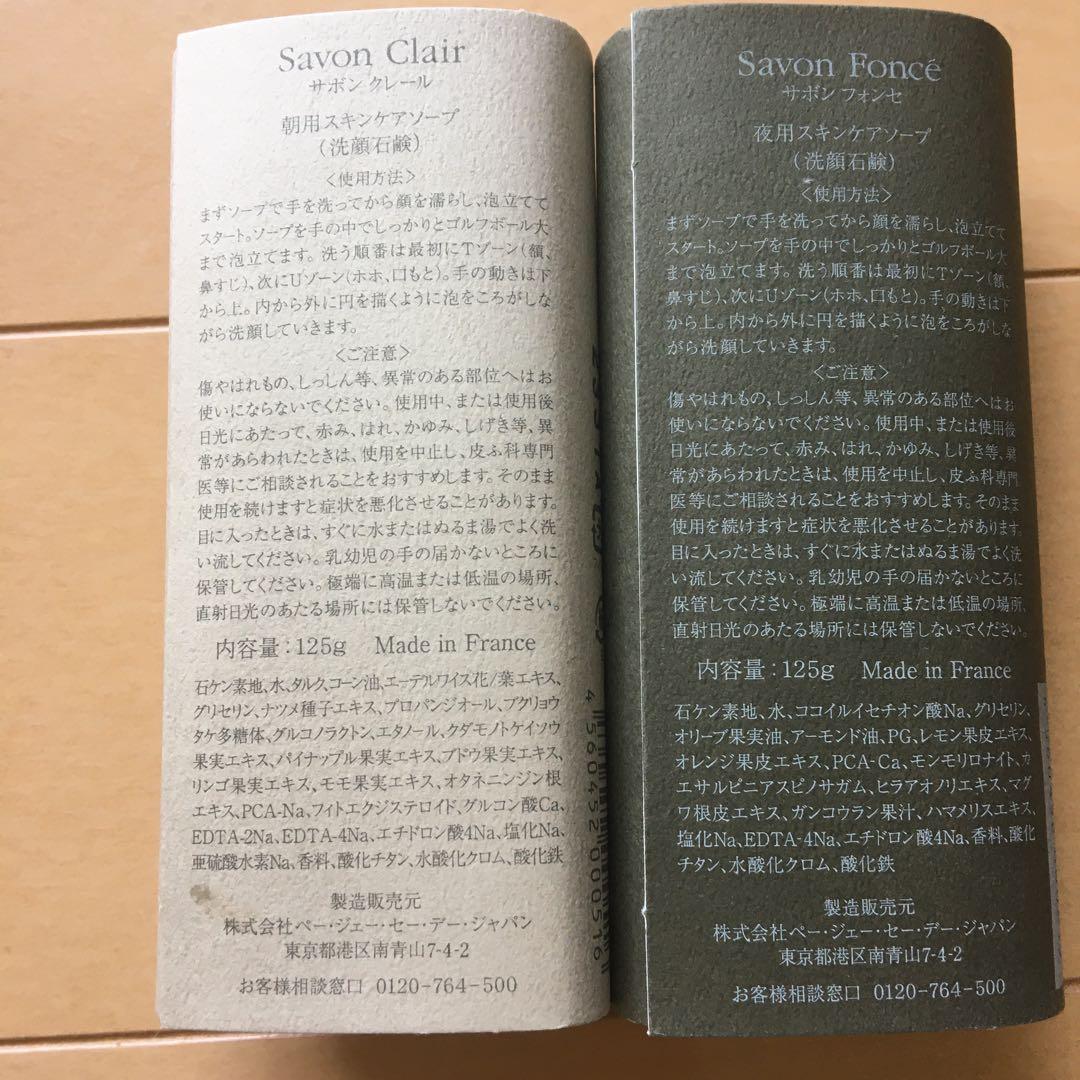 Savon Clair
サボン クレール
朝用スキンケアソープ
(洗顔石鹸)
<使用方法>
まずソープで手を洗ってから顔を濡らし、泡立てて
スタート。ソープを手の中でしっかりとゴルフボール大
まで泡立てます。洗う順番は最初にTゾーン(額、
鼻すじ)、次にUゾーン(ホホ、口もと)。手の動きは下
から上。内から外に円を描くように泡をころがしな
がら洗顔していきます。
<ご注意>
傷やはれもの、しっしん等、異常のある部位へはお
使いにならないでください。使用中、または使用後
日光にあたって、赤み、はれ、かゆみ、しげき等、異
常があらわれたときは、使用を中止し、皮ふ科専門
医等にご相談されることをおすすめします。そのまま
使用を続けますと症状を悪化させることがあります。
目に入ったときは、すぐに水またはぬるま湯でよく洗
い流してください。乳幼児の手の届かないところに
保管してください。極端に高温または低温の場所、
直射日光のあたる場所には保管しないでください。
内容量:125g Made in France
石ケン素地、水、タルク、コーン油、エーデルワイス花/葉エキス、
グリセリン、ナツメ種子エキス、プロパンジオール、ブクリョウ
タケ多糖体、グルコノラクトン、エタノール、クダモノトケイソウ
果実エキス、パイナップル果実エキス、ブドウ果実エキス、
リンゴ果実エキス、モモ果実エキス、オタネニンジン根
エキス、PCA-Na、フィトエクジステロイド、グルコン酸Ca、
EDTA-2Na、EDTA-4Na、エチドロン酸4Na、塩化Na、
亜硫酸水素Na、香料、酸化チタン、水酸化クロム、酸化鉄
製造販売元
株式会社ペー・ジェー・セー・デー・ジャパン
東京都港区南青山7-4-2
お客様相談窓口 0120-764-500
4 560452 000516
Savon Foncé
サボン フォンセ
夜用スキンケアソープ
(洗顔石鹸)
<使用方法>
まずソープで手を洗ってから顔を濡らし、泡立てて
スタート。ソープを手の中でしっかりとゴルフボール大
まで泡立てます。洗う順番は最初にTゾーン(額、
鼻すじ)、次にUゾーン(ホホ、口もと)。手の動きは下
から上。内から外に円を描くように泡をころがしな
がら洗顔していきます。
<ご注意>
傷やはれもの、しっしん等、異常のある部位へはお
使いにならないでください。使用中、または使用後
日光にあたって、赤み、はれ、かゆみ、しげき等、異
常があらわれたときは、使用を中止し、皮ふ科専門
医等にご相談されることをおすすめします。そのまま
使用を続けますと症状を悪化させることがあります。
目に入ったときは、すぐに水またはぬるま湯でよく洗
い流してください。乳幼児の手の届かないところに
保管してください。極端に高温または低温の場所、
直射日光のあたる場所には保管しないでください。
内容量:125g Made in France
石ケン素地、水、ココイルイセチオン酸Na、グリセリン、
オリーブ果実油、アーモンド油、PG、レモン果皮エキス、
オレンジ果皮エキス、PCA-Ca、モンモリロナイト、カ
エサルピニアスピノサガム、ヒラアオノリエキス、マグ
ワ根皮エキス、ガンコウラン果汁、ハマメリスエキス、
塩化Na、EDTA-4Na、エチドロン酸4Na、香料、酸化
チタン、水酸化クロム、酸化鉄
製造販売元
株式会社ペー・ジェー・セー・デー・ジャパン
東京都港区南青山7-4-2
お客様相談窓口 0120-764-500